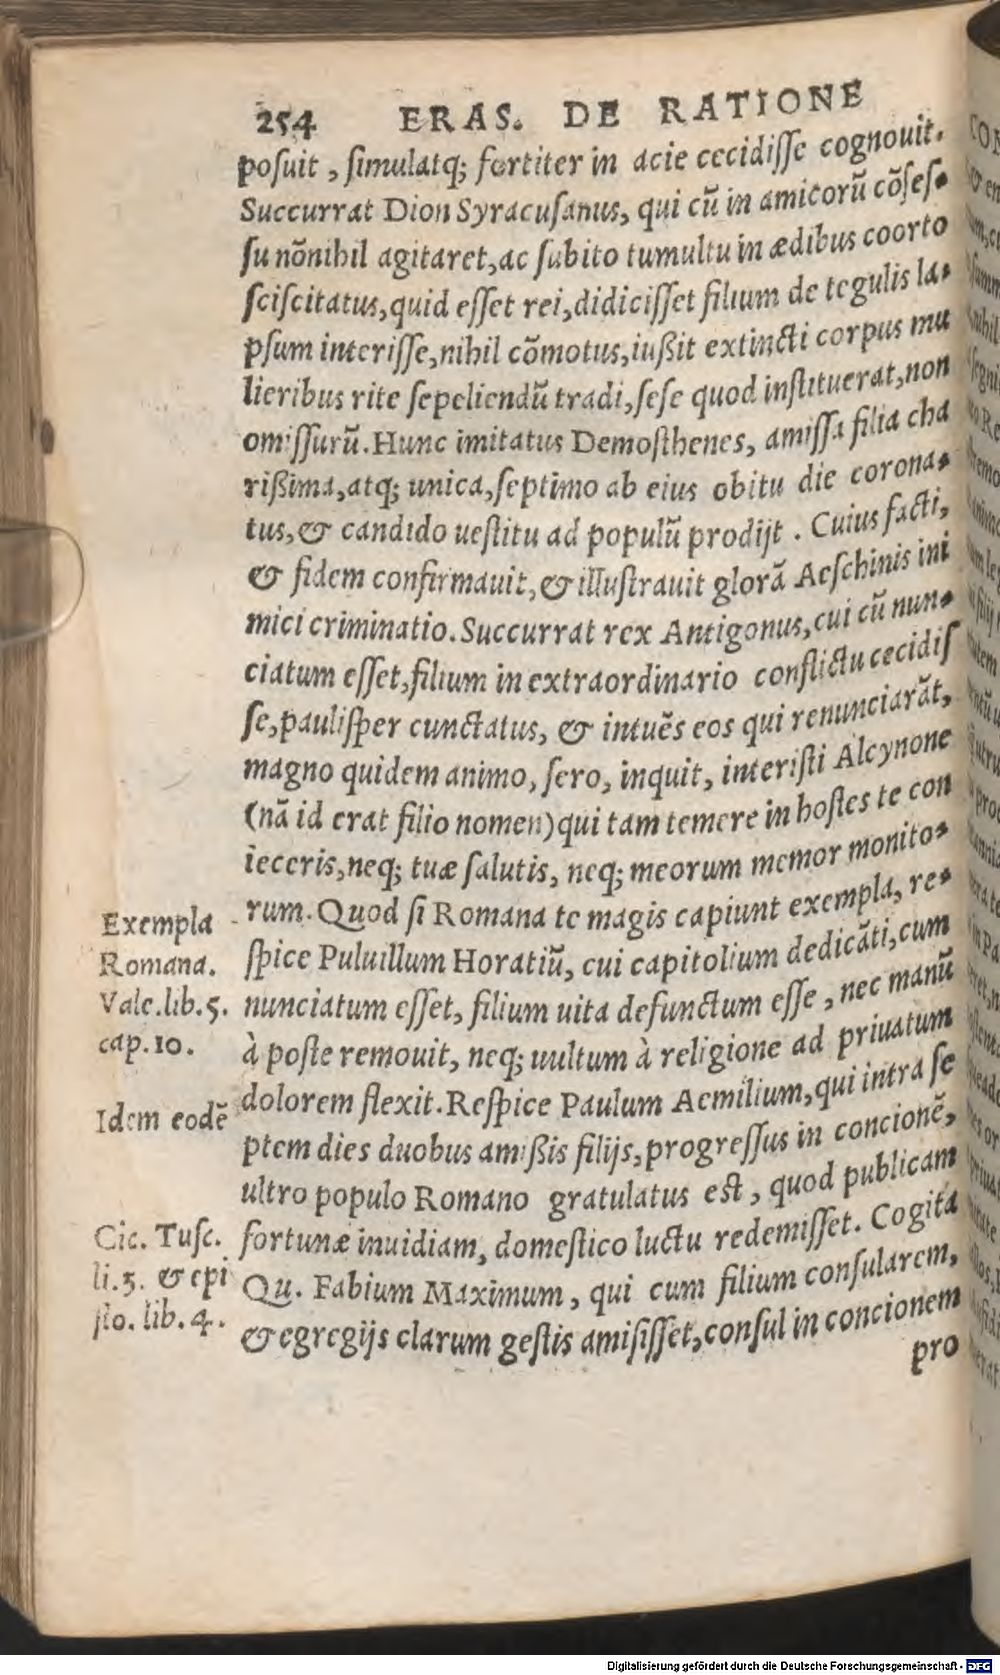 254 ERAS. DE RATIONE
posuit, simulatq; fortiter in acie cecidisse cognouit.
Succurrat Dion Syracusanus, qui cũ in amicorũ cõses-
su nõnihil agitaret, ac subito tumultu in ædibus coorto
sciscitatus, quid esset rei, didicisset filium de tegulis la-
psum interisse, nihil cõmotus, iußit extincti corpus mu
lieribus rite sepeliendũ tradi, sese quod instituerat, non
omissurũ. Hunc imitatus Demosthenes, amissa filia cha
rißima, atq; unica, septimo ab eius obitu die corona-
tus, & candido uestitu ad populũ prodijt. Cuius facti,
& fidem confirmauit, & illustrauit glorã Aeschinis ini
mici criminatio. Succurrat rex Antigonus, cui cũ nun-
ciatum esset, filium in extraordinario conflictu cecidis
se, paulisper cunctatus, & intuẽs eos qui renunciarãt,
magno quidem animo, sero, inquit, interisti Alcynone
(nã id erat filio nomen) qui tam temere in hostes te con
ieceris, neq; tuæ salutis, neq; meorum memor monito-
Exempla
Romana.
Vale. lib. 5.
cap. 10.
rum. Quod si Romana te magis capiunt exempla, re-
spice Puluillum Horatiũ, cui capitolium dedicãti, cum
nunciatum esset, filium uita defunctum esse, nec manũ
à poste remouit, neq; uultum à religione ad priuatum
Idem eodẽ
dolorem flexit. Respice Paulum Aemilium, qui intra se
ptem dies duobus amißis filijs, progressus in concionẽ,
ultro populo Romano gratulatus est, quod publicam
Cic. Tusc.
li. 3. & epi
sto. lib. 4.
fortunæ inuidiam, domestico luctu redemisset. Cogita
Qu. Fabium Maximum, qui cum filium consularem,
& egregijs clarum gestis amisisset, consul in concionem
pro
Digitalisierung gefördert durch die Deutsche Forschungsgemeinschaft - DFG